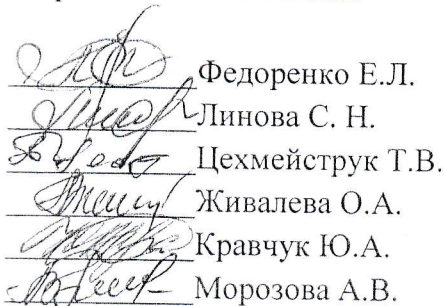 Федоренко Е.Л.
Линова С. Н.
Цехмейструк Т.В.
Живалева О.А.
Кравчук Ю.А.
Морозова А.В.